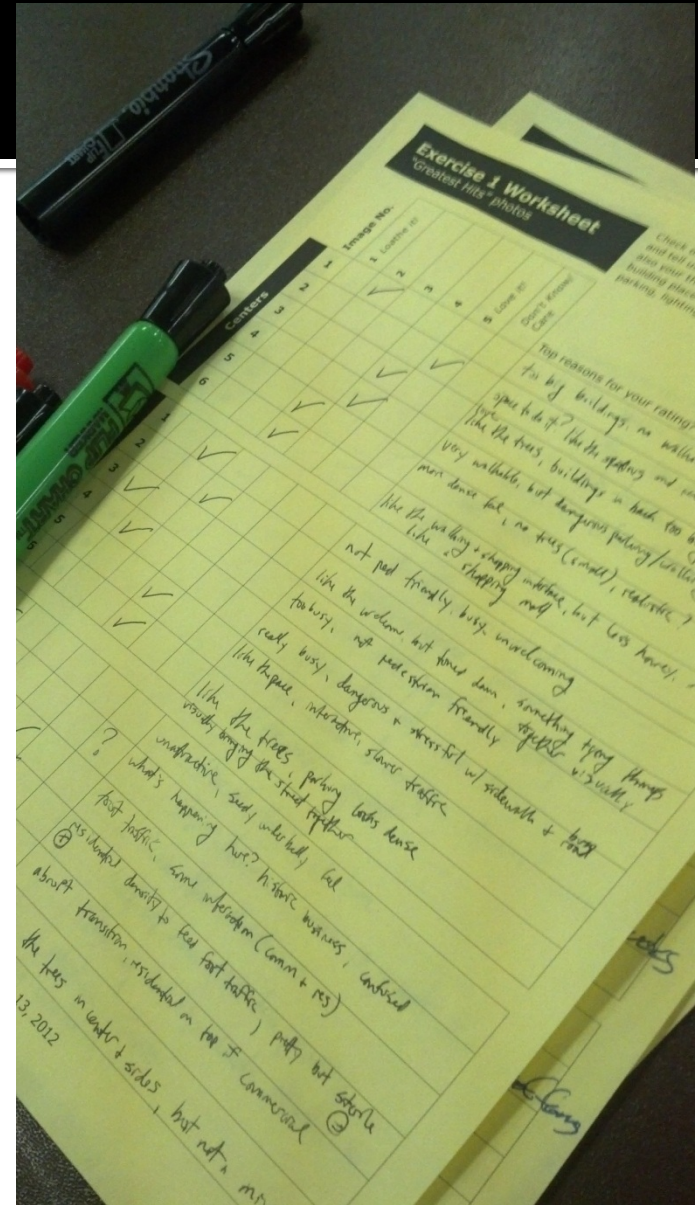 Sharpie
FLIP CHART
FLIP CHART
Exercise 1 Worksheet
"Greatest Hits" photos
Check
and tell u
also your th
building plac
parking, lightin
Image No.
1 Loathe it!
2
3
4
5 Love it!
Don't Know/
Care
Top reasons for your rating?
Centers
1
2
3
4
5
6
1
2
3
4
5
6
too big buildings. no walka
space to do it? like the
like the trees, buildings in back too b
very walkable, but dangerous parking/walk
more dense feel, no trees (small), realistic?
like the walking + shopping interface, but loss
like a shopping mall
not ped friendly, busy, unwelcoming
like the welcome but toned down, something tying things
together visually
too busy, not pedestrian friendly
really busy, dangerous + stressful w/ sidewalk + busy
road
like the pace, interactive, slower traffic
like the trees, parking looks dense
visually bringing the street together
unattractive, seedy underbelly feel
? what's happening here? historic business, confused
foot traffic, some interaction (comm + res)
+ residential density to feed foot traffic, pretty but sterile
abrupt transition, residential on top of commercial
the trees in center + sides, but not a mi
13, 2012